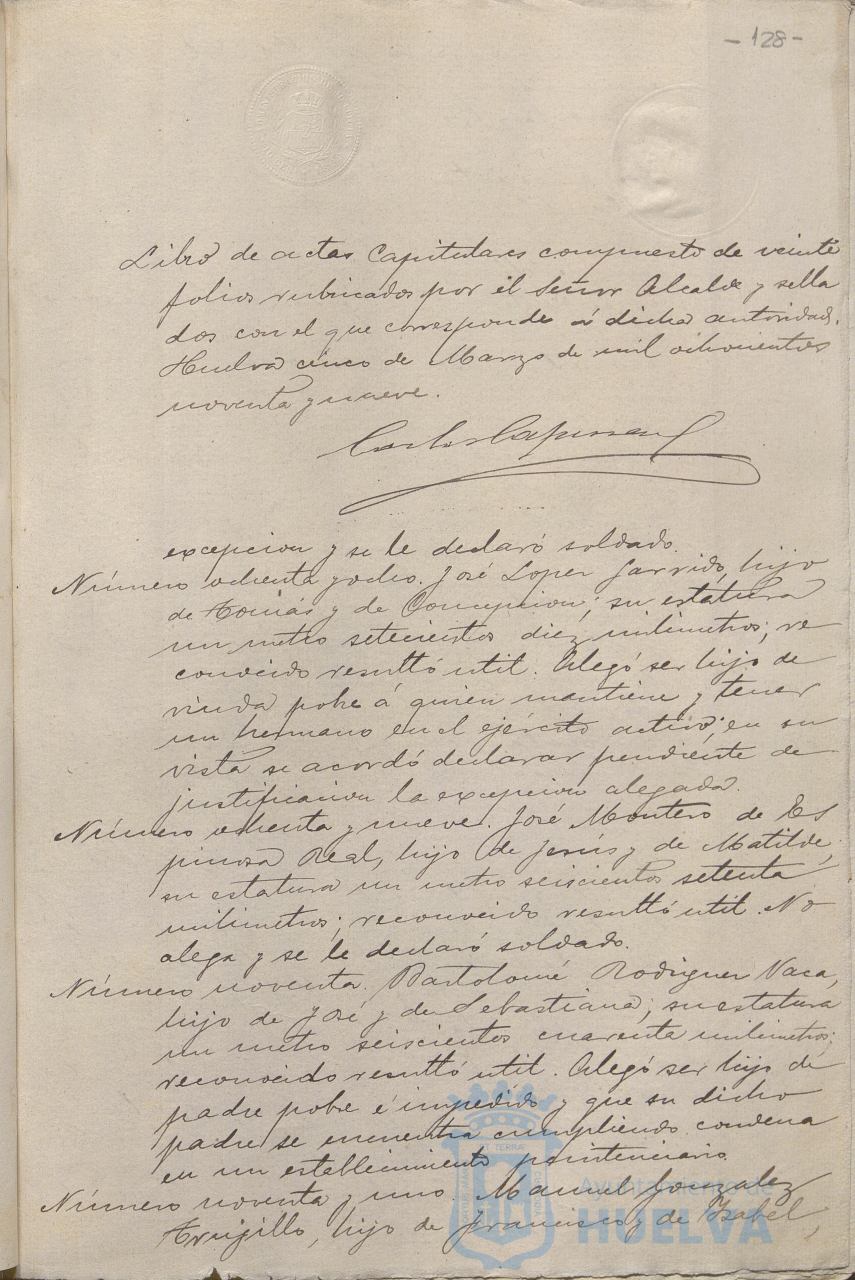 - 128 -
Libro de actas Capitulares compuesto de veinte
folios rubricados por el Señor Alcalde y sella
dos con el que corresponde á dicha autoridad.
Huelva cinco de Marzo de mil ochocientos
noventa y nueve.
excepcion y se le declaró soldado.
Número ochenta y ocho. José Lopez Garrido, hijo
de Tomás y de Concepcion; su estatura
un metro setecientos diez milimetros; re
conocido resultó util. Alegó ser hijo de
viuda pobre á quien mantiene y tener
un hermano en el ejército activo; en su
vista se acordó declarar pendiente de
justificacion la excepcion alegada.
Número ochenta y nueve. José Montero de Es
pinosa Real, hijo de Jesús y de Matilde;
su estatura un metro seiscientos setenta
milimetros; reconocido resultó util. No
alega y se le declaró soldado.
Número noventa. Bartolomé Rodriguez Vaca,
hijo de José y de Sebastiana; su estatura
un metro seiscientos cuarenta milimetros;
reconocido resultó util. Alegó ser hijo de
padre pobre é impedido y que su dicho
padre se encuentra cumpliendo condena
en un establecimiento penitenciario.
Número noventa y uno. Manuel Gonzalez
Trujillo, hijo de Francisco y de Isabel,
Ayuntamiento de
HUELVA